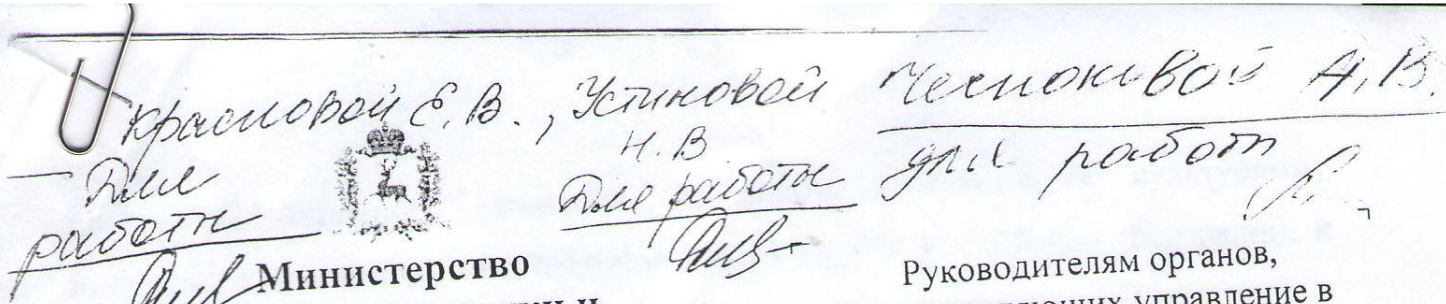 Красновой Е.В., Устиновой
Н.В
Для
работы
Для работы
А.В.
для работы
Министерство
и
Руководителям органов,
управление в